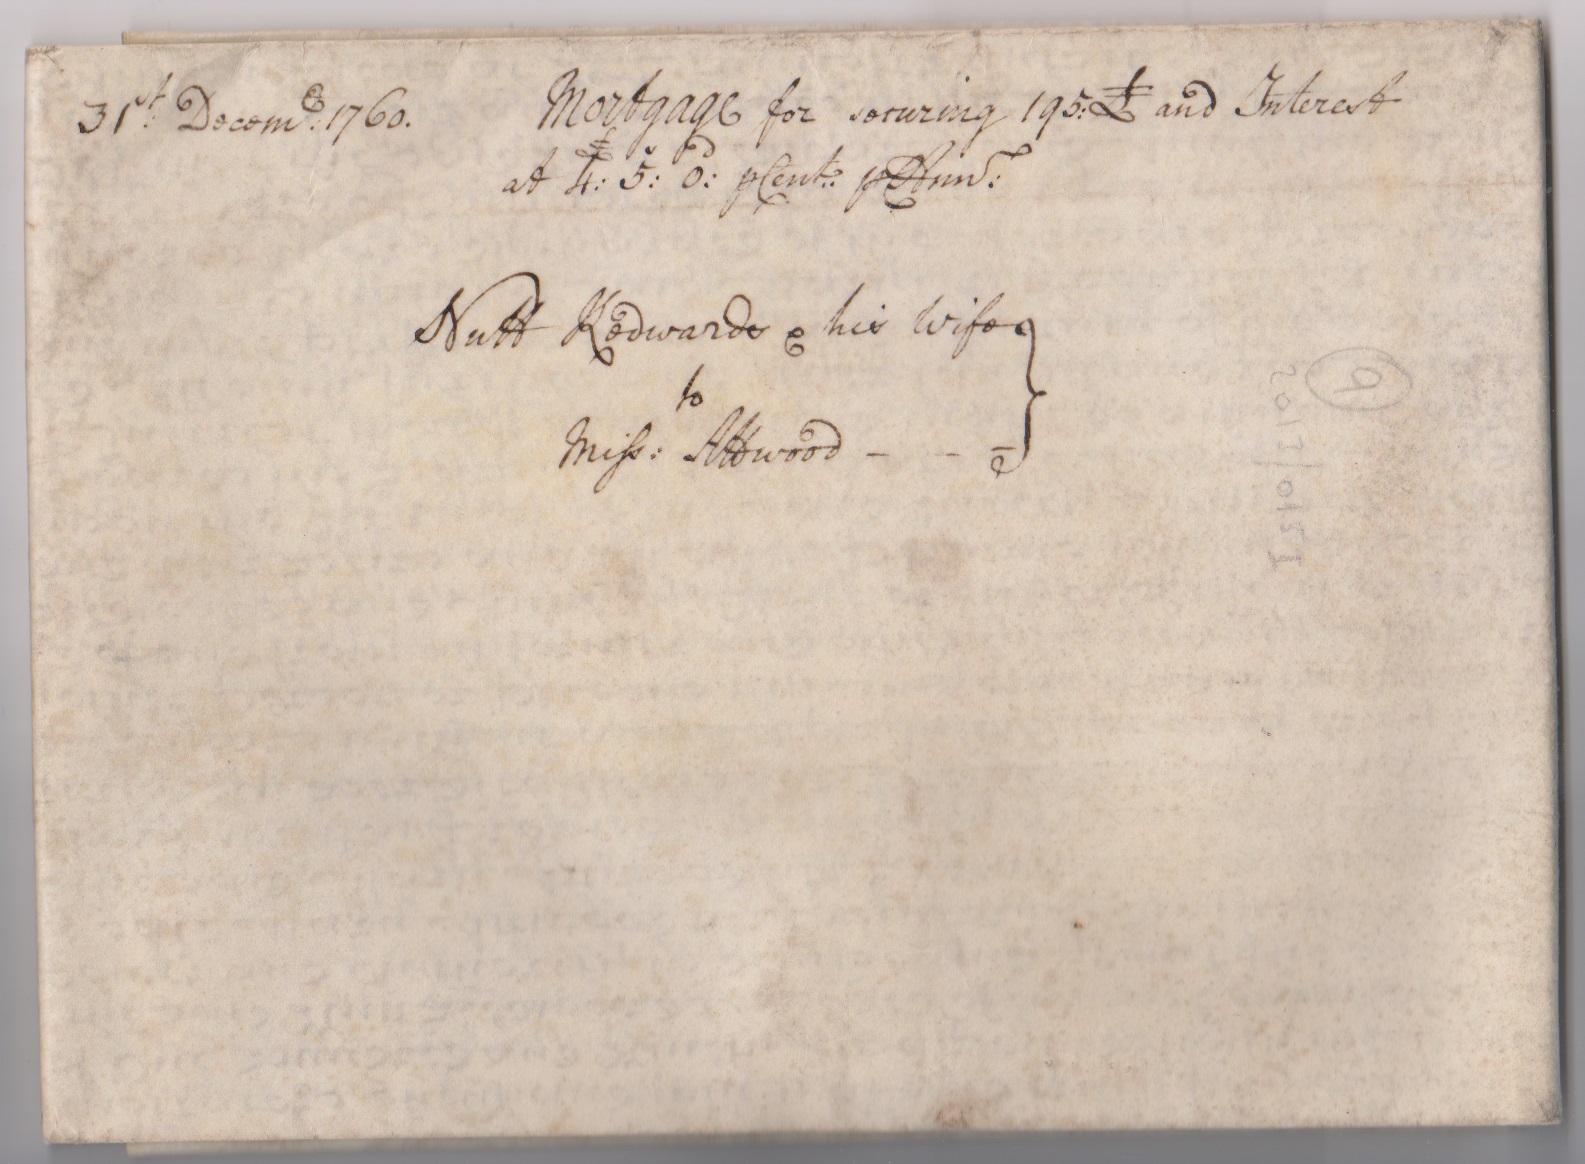 31st: Decemr: 1760. Mortgage for securing 195:£ and Interest
at £4: 5s: 0d: pCent: p Ann:
Nutt Kedwards & his Wife
to
Miss: Attwood - - -
9